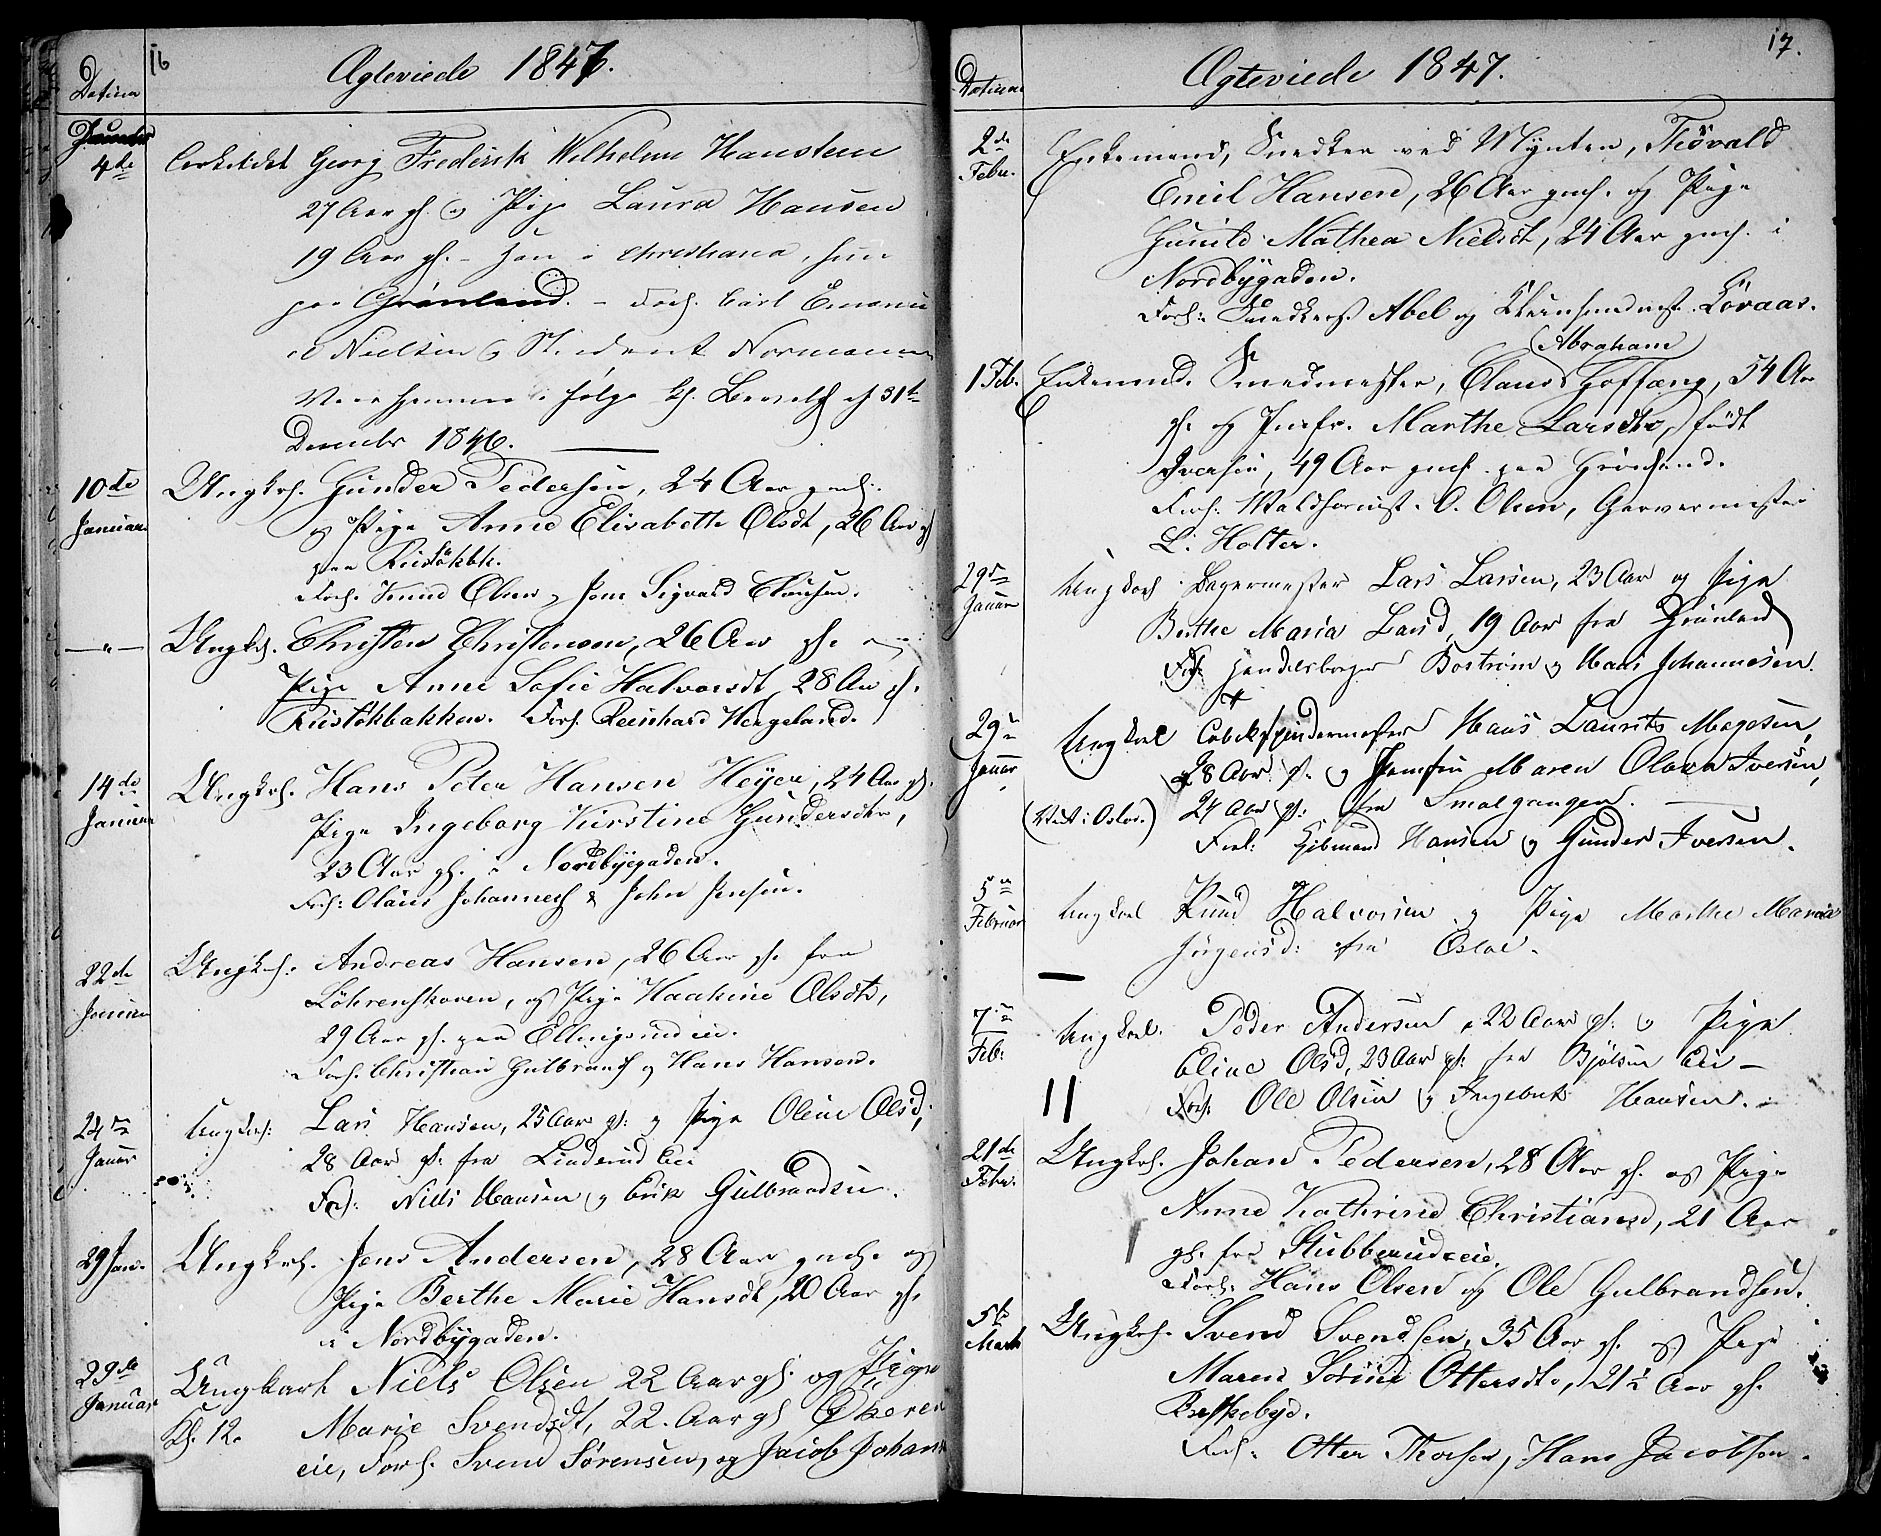 16
Ægteviede 1847.
Datum
4de Arkitekt Georg Frederik Wilhelm Hansteen
27 Aar gl. og Pige Laura Hansen
19 Aar gl. - han i Christiania, hun
paa Grønland. - Forl. Carl Emanu
el Nielsen og Student Normann
i Følge
December 1846.
10de Januar Ungkrl. Gunder Pedersen, 24 Aar gml.
og Pige Anne Elisabeth Olsdt, 26 Aar gl
paa Rusløkbk.
Forl. Knud Olsen og Jens Sigvard Clausen.
—"— Ungkrl. Christen Christensen, 26 Aar gl. og
Pige Anne Sofie Halvorsdt, 28 Aar gl.
Rusløkbakken. Forl. Reinhard Hergeland.
14de Januar Ungkrl. Hans Peter Hansen Heyer, 24 Aar gl.
Pige Ingeborg Kirstine Gundersdtr,
23 Aar gl. i Nordbyegaden.
Forl: Olaus Johannes & John Jensen.
22de Januar Ungkrl. Andreas Hansen, 26 Aar gl. fra
Løhrenskoven, og Pige Haakine Olsdtr,
29 Aar gl. paa Ellingsrudeie.
Forl. Christian Gulbrands og Hans Hansen.
24de Januar Ungkrl: Lars Hansen, 25 Aar gl: og Pige Oline Olsd;
28 Aar gl. fra Linderud Eie
Forl: Niels Hansen og Erik Gulbrandsen.
29 Jan. Ungkrl. Jens Andersen, 28 Aar gml. og
Pige Berthe Marie Hansdt, 20 Aar gl.
i Nordbygaden.
29de Januar Ungkarl Niels Olsen 22 Aar gl. og Pige
Kl. 12. Marie Svendsdt, 22. Aar gl Økeren
eie, Forl. Svend Sørensen, og Jacob Johans
17.
Ægteviede 1847.
Datum
2de Febr. Enkemand, Snedker ved Mynten, Thorvald
Emil Hansen, 26 Aar gml. og Pige
Gunild Mathea Nielsdt, 24 Aar gml. i
Nordbygaden.
Forl: Snedkers. Abel og Løvaas.
(Abraham)
1 Feb. Enkemd. Smedmester, Claus Hoffang, 54 Aar
gl. og Jomfr. Marthe Larsdtr, født
Iversen, 49 Aar gml. paa Grønland.
Forl: O. Olsen, Garvermester
L. Holter.
29de Januar Ungkarl Bagermester Lars Larsen, 23 Aar og Pige
Berthe Maria Larsd, 19 Aar fra Grønland
Forl: Handelsborger Bostrøm og Hans Johannesen.
29de Januar Ungkarl Hans Laurits Mogesen,
28 Aar gl. og Jomfru Maren Olava Iversen,
24 Aar gl: fra Smalgangen.
(Viet i Oslo.)
Forl: Hansen og Gunder Iversen.
5te Februar Ungkarl Knud Halvorsen og Pige Marthe Maria
Jørgensd: fra Oslo.
7de Feb: Ungkarl. Peder Andersen, 22 Aar gl. og Pige
Eline Olsd, 23 Aar gl: fra Bjølsen Eie —
Forl: Ole Olsen og Ingebrit Hansen.
21de Febr. Ungkrl. Johan Pedersen, 28 Aar gl. og Pige
Anne Kathrine Christiansd, 21 Aar
gl. fra Stubberudeie.
Forl. Hans Olsen og Ole Gulbrandsen.
5te Marts Ungkrl. Svend Svendsen, 35 Aar gl. og Pige
Maren Sørine Ottersdt., 21½ Aar gl.
Forl: Otter Thorsen, Hans Jacobsen.